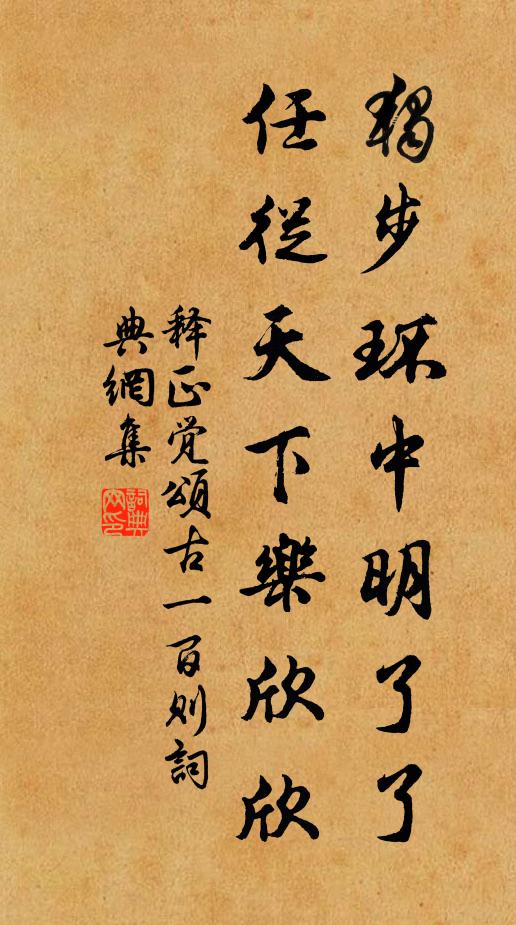 獨步環中明了了
任從天下樂欣欣
释正觉頌古一百则詞
典網集
詞典
网印